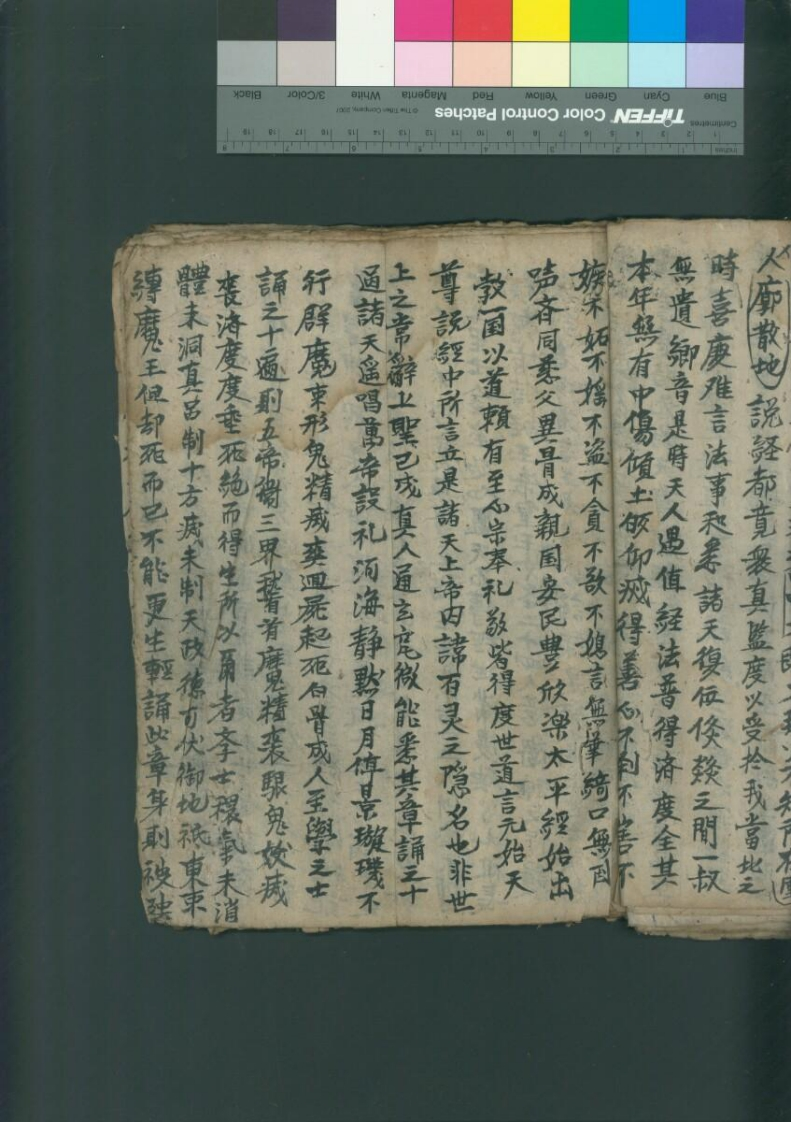 人廓散地說経都竟衆真監度以受於我當此之
時喜慶难言法事粗悉諸天復位倏歘之間一叔
無遺響音是時天人遇值経法普得済度全其
本年無有中傷傾土欲仰咸得善心不殺不害不
嫉不妬不婬不盗不貪不欲不媿言無華綺口無
声斉同慈父異骨成親国安民豊欣楽太平経始出
敎一国以道頼有至心宗奉礼敬皆得度世道言元始天
尊説經中所言並是諸天上帝内諱百灵之隠名也非世
上之常辭上聖已成真人通玄究微能悉其章誦之十
過諸天遥唱萬帝設礼河海静黙日月停景璇璣不
行群魔束形鬼精滅爽迴屍起死白骨成人至學之士
誦之十遍則五帝衛三界稽首魔精喪眼鬼妖滅
喪済度度垂死絶而得生所以爾者孝士穢氣未消
體未洞真召制十方威未制天政徳可伏御地祇東束
縳魔王但却死而已不能更生輕誦此章身則被殃
Blue
Cyan
Green
Yellow
Red
Magenta
White
3/Color
Black
Centimetres
TIFFEN Color Control Patches
© The Tiffen Company, 2007
Inches